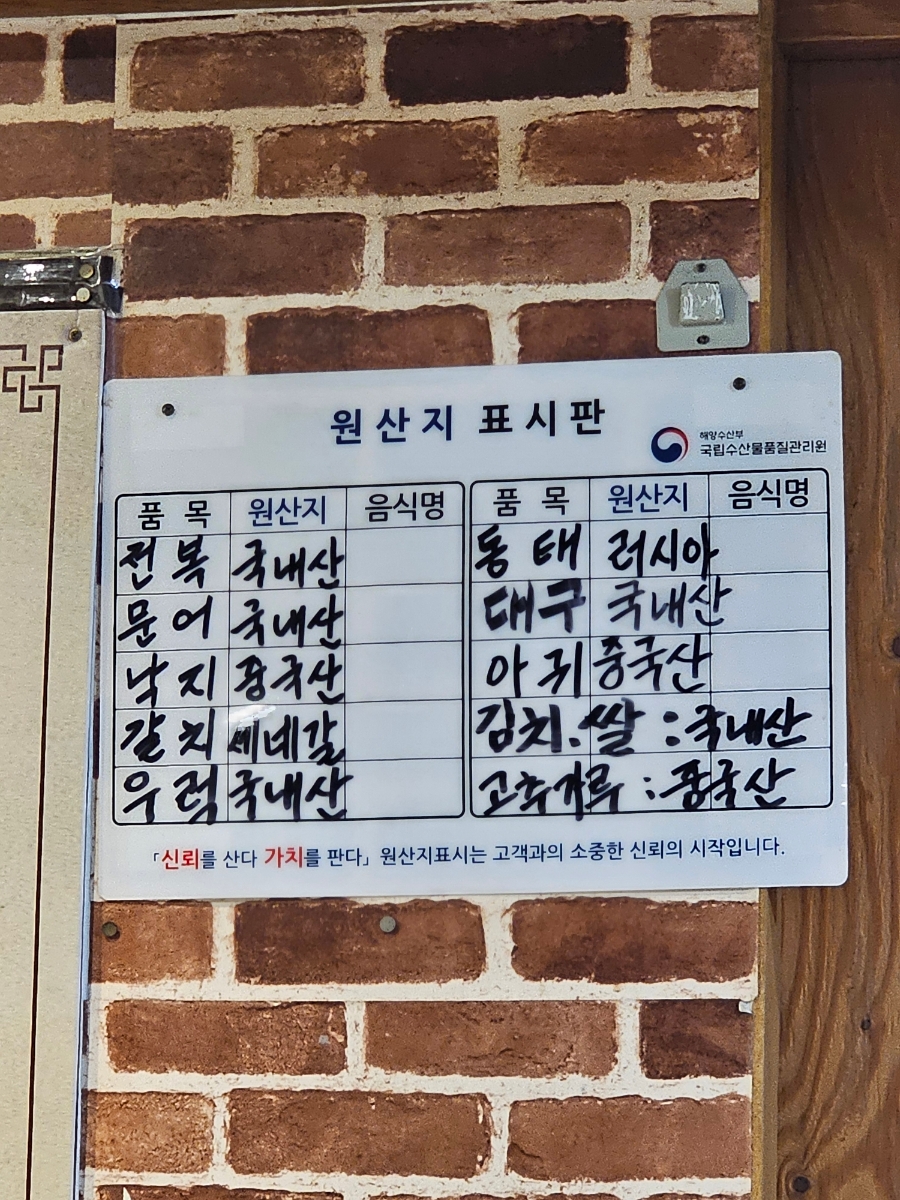 원산지 표시판
해양수산부
국립수산물품질관리원
품 목 원산지 음식명
전복 국내산
문어 국내산
낙지 중국산
갈치 세네갈
우럭 국내산
품 목 원산지 음식명
동태 러시아
대구 국내산
아귀 중국산
김치.쌀 : 국내산
고추가루 : 중국산
「신뢰를 산다 가치를 판다」 원산지표시는 고객과의 소중한 신뢰의 시작입니다.